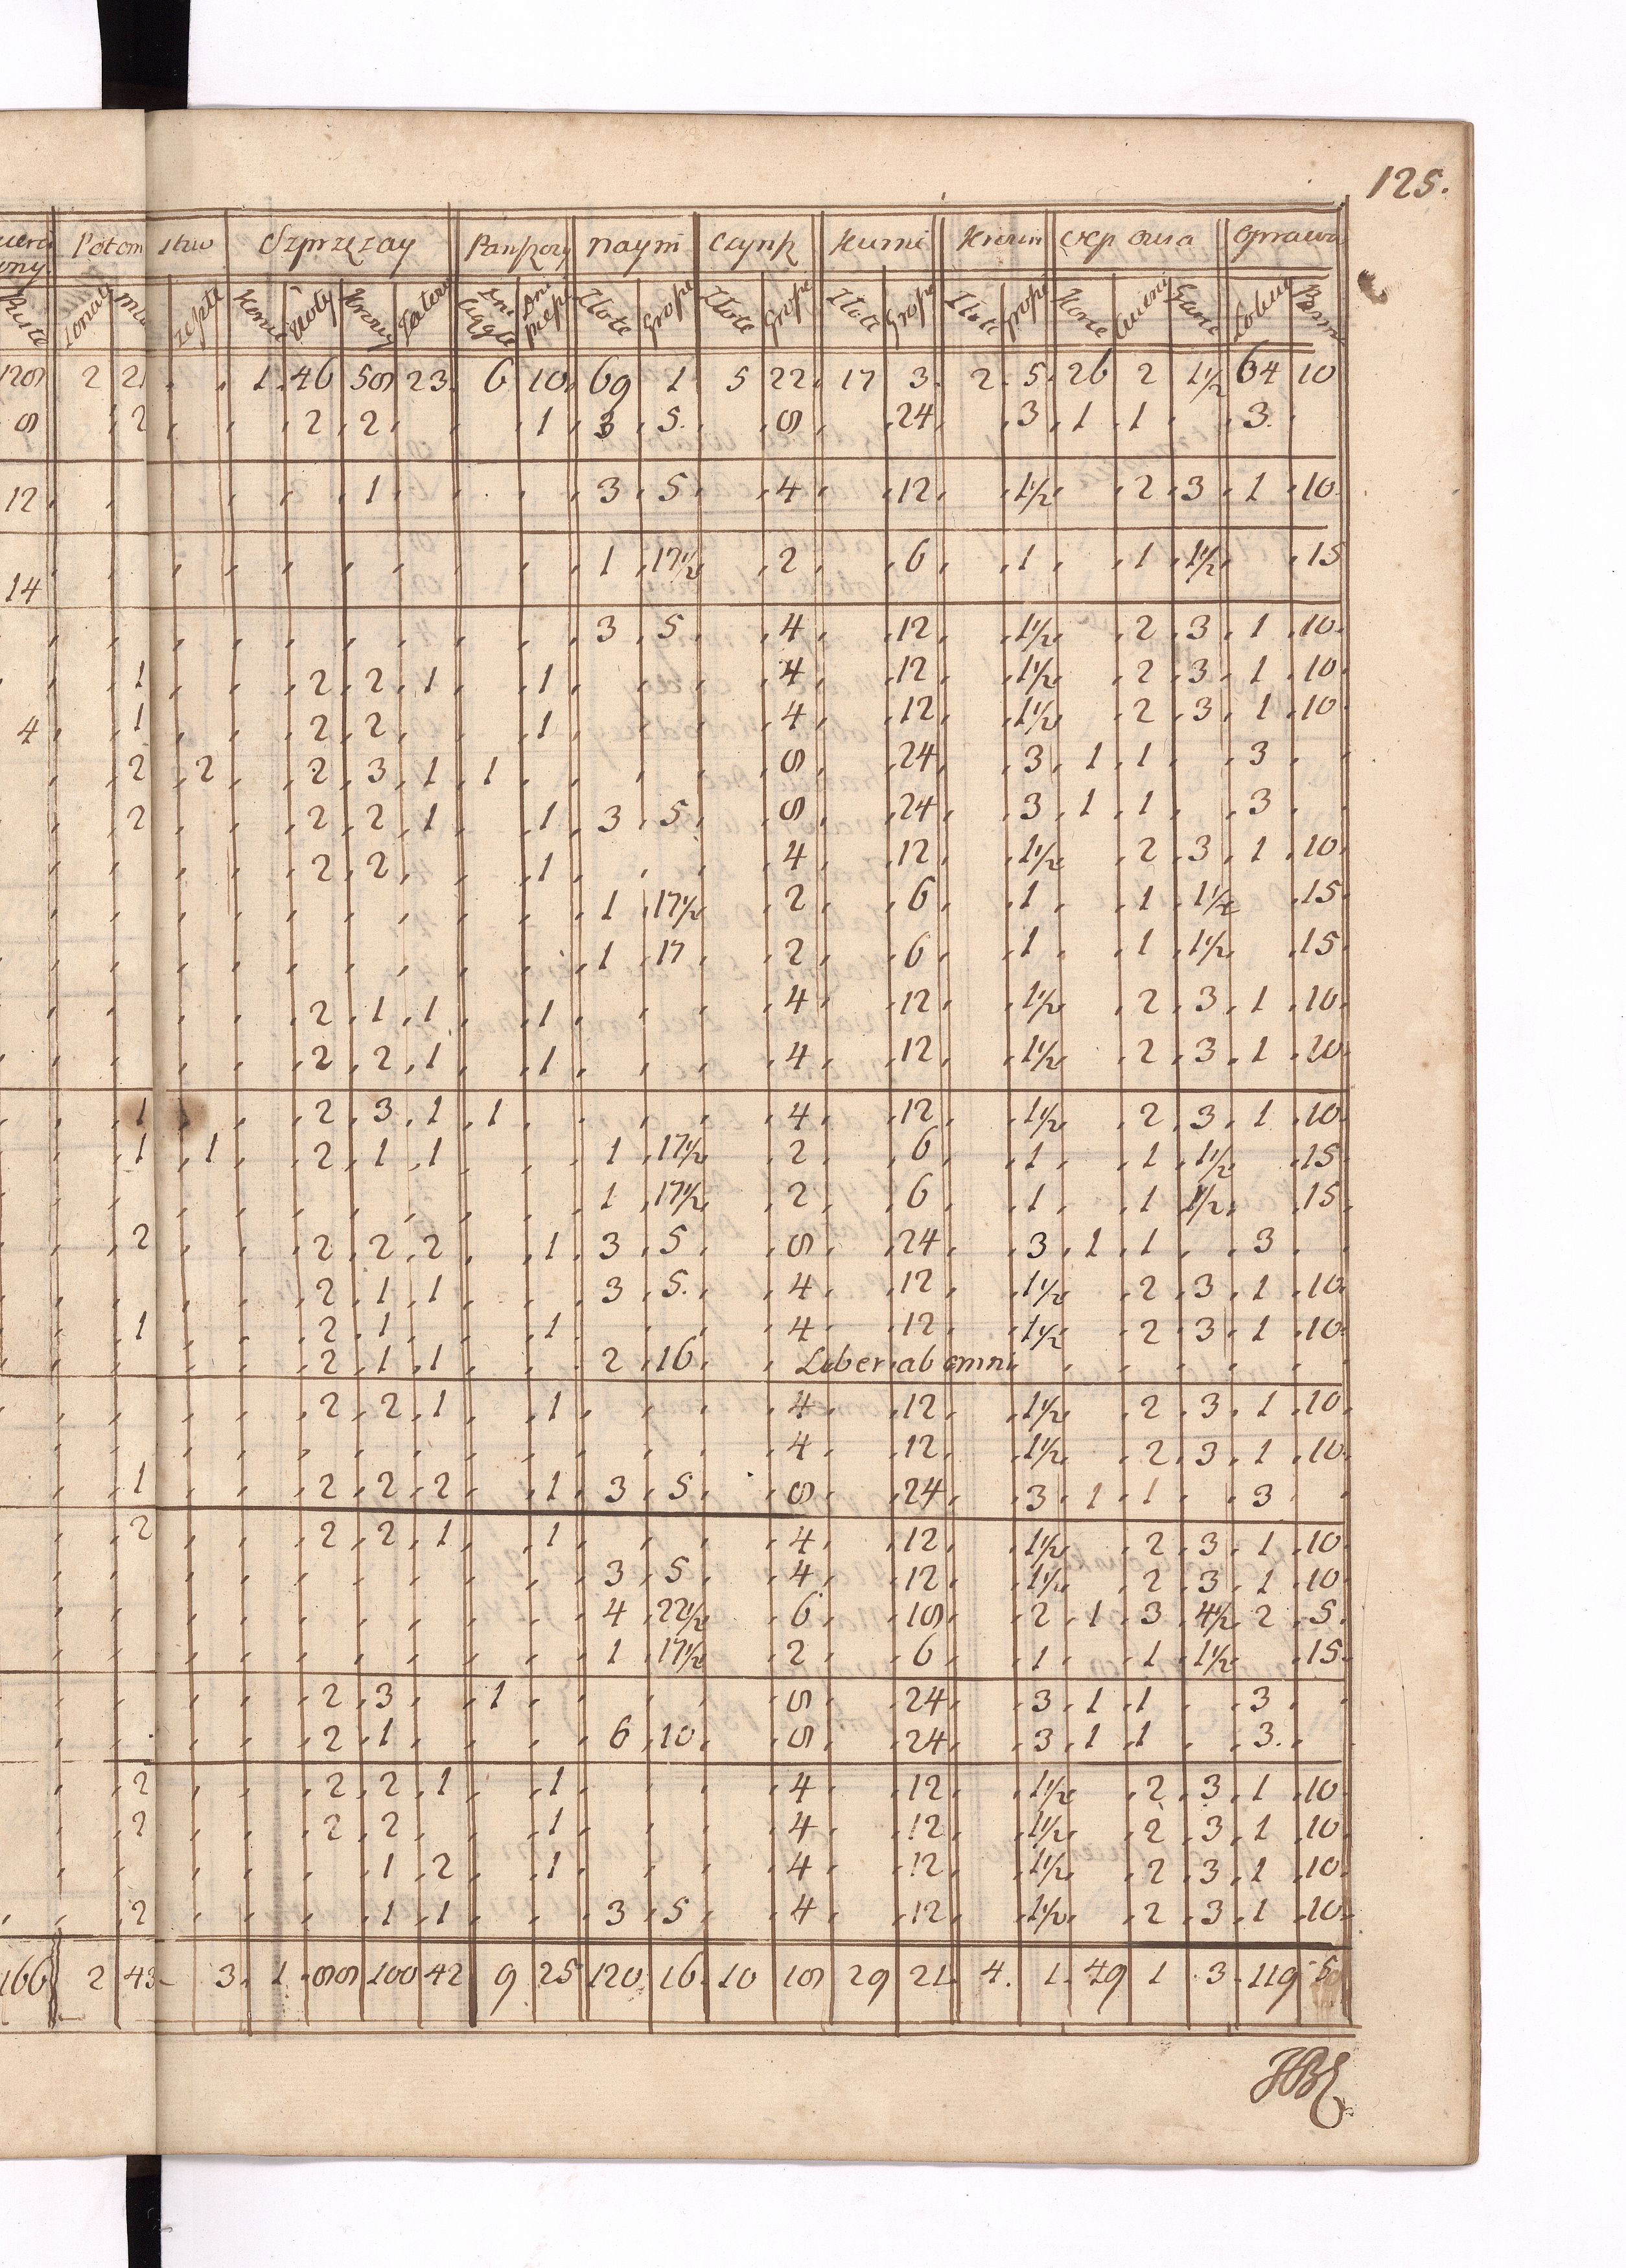 125.
Potom stwo Szprzęzay Panszczyz naym Czynsz Kurnie Krown Osep owsa Oprawa
Konie Woły Krowy Jałow Złote Grosze Złote Grosze Złote Grosze Złote Grosze Korce Cwierci Garce
1208 2 21 1 46 58 23 6 10 69 1 5 22 17 3 2 5 26 2 1½ 64 10
8 2 2 2 1 3 5 8 24 3 1 1 3
12 1 3 5 4 12 1½ 2 3 1 10
1 17½ 2 6 1 1 1½ 15
14
3 5 4 12 1½ 2 3 1 10
1 2 2 1 1 4 12 1½ 2 3 1 10
4 1 2 2 1 4 12 1½ 2 3 1 10
2 2 2 3 1 1 8 24 3 1 1 3
2 2 2 1 1 3 5 8 24 3 1 1 3
2 2 1 4 12 1½ 2 3 1 10
1 17½ 2 6 1 1 1½ 15
1 17 2 6 1 1 1½ 15
2 1 1 1 4 12 1½ 2 3 1 10
2 2 1 1 4 12 1½ 2 3 1 20
1 1 2 3 1 1 4 12 1½ 2 3 1 10
1 1 2 1 1 1 17½ 2 6 1 1 1½ 15
1 17½ 2 6 1 1 1½ 15
2 2 2 2 1 3 5 8 24 3 1 1 3
2 1 1 3 5 4 12 1½ 2 3 1 10
1 2 1 1 4 12 1½ 2 3 1 10
2 1 1 2 16 Liber ab omni
2 2 1 1 4 12 1½ 2 3 1 10
4 12 1½ 2 3 1 10
1 2 2 2 1 3 5 8 24 3 1 1 3
2 2 2 1 1 4 12 1½ 2 3 1 10
3 5 4 12 1½ 2 3 1 10
4 22½ 6 18 2 1 3 4½ 2 5
1 17½ 2 6 1 1 1½ 15
2 3 1 8 24 3 1 1 3
2 1 6 10 8 24 3 1 1 3
2 2 2 1 1 4 12 1½ 2 3 1 10
2 2 2 1 4 12 1½ 2 3 1 10
1 2 1 4 12 1½ 2 3 1 10
2 1 1 3 5 4 12 1½ 2 3 1 10
166 2 43 3 1 88 100 42 9 25 120 16 10 18 29 21 4 1 49 1 3 119 5